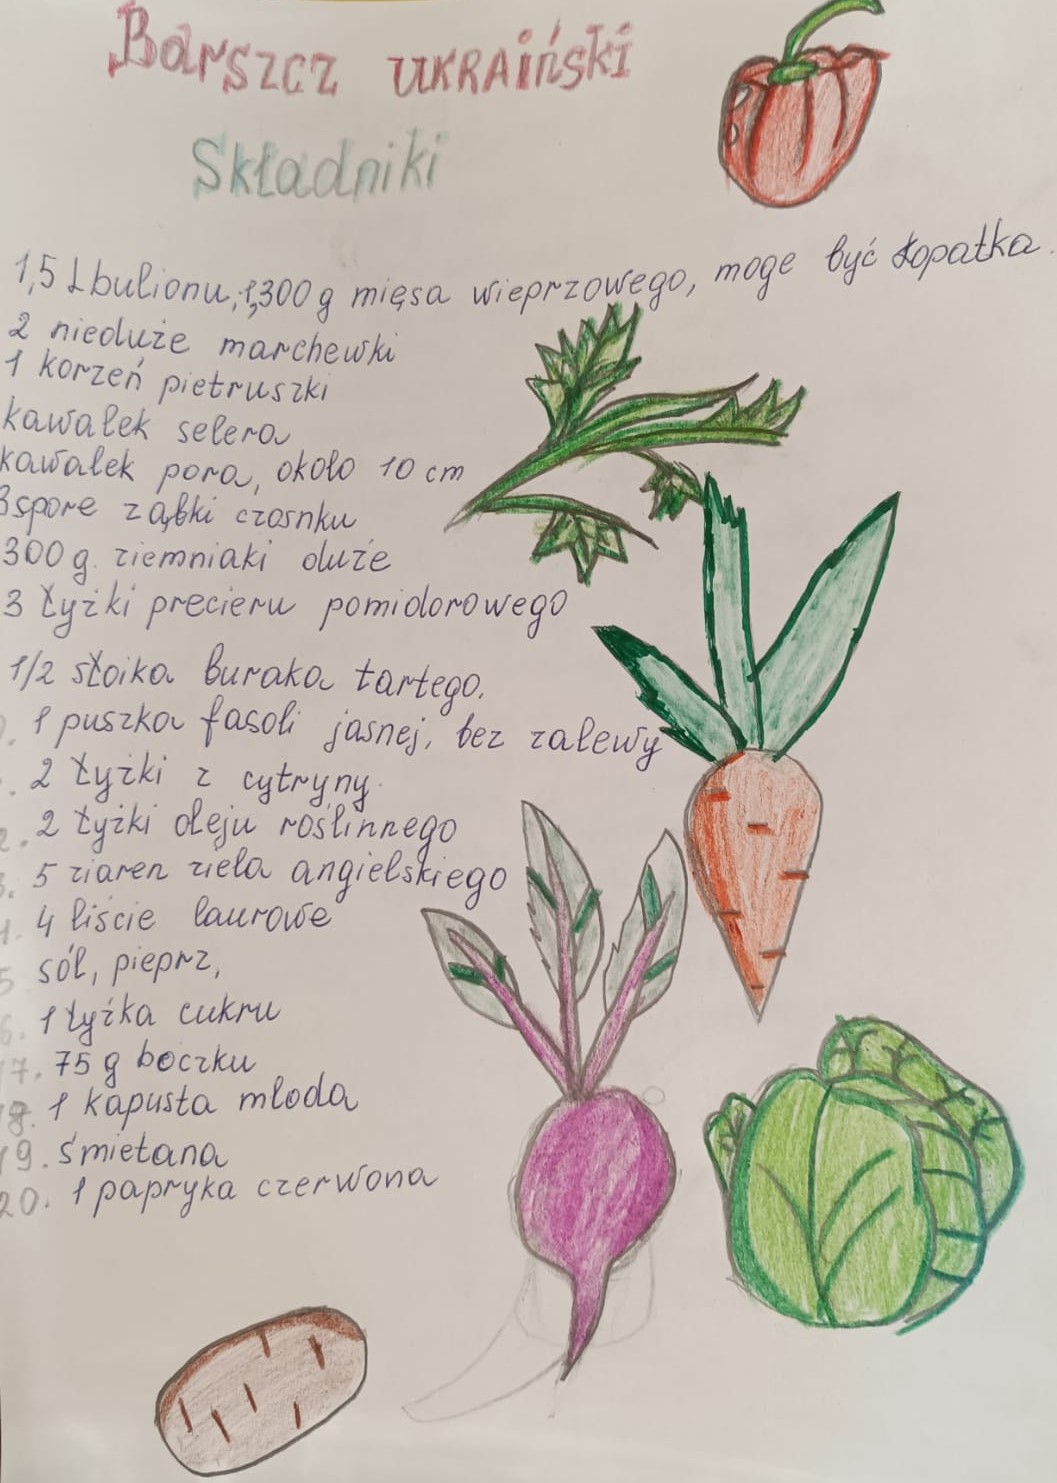 Barszcz ukraiński
Składniki
1,5 L bulionu, 1,300 g mięsa wieprzowego, moge być łopatka.
2 nieduże marchewki
1 korzeń pietruszki
kawałek selera
kawałek pora, około 10 cm
3 spore ząbki czosnku
300 g. ziemniaki duże
3 łyżki precieru pomidorowego
1/2 słoika buraka tartego.
1 puszka fasoli jasnej, bez zalewy
. 2 łyżki z cytryny.
2. 2 łyżki oleju roślinnego
3. 5 ziaren ziela angielskiego
4. 4 liście laurowe
5 sól, pieprz,
6. 1 łyżka cukru
17. 75 g boczku
18. 1 kapusta młoda
19. śmietana
20. 1 papryka czerwona